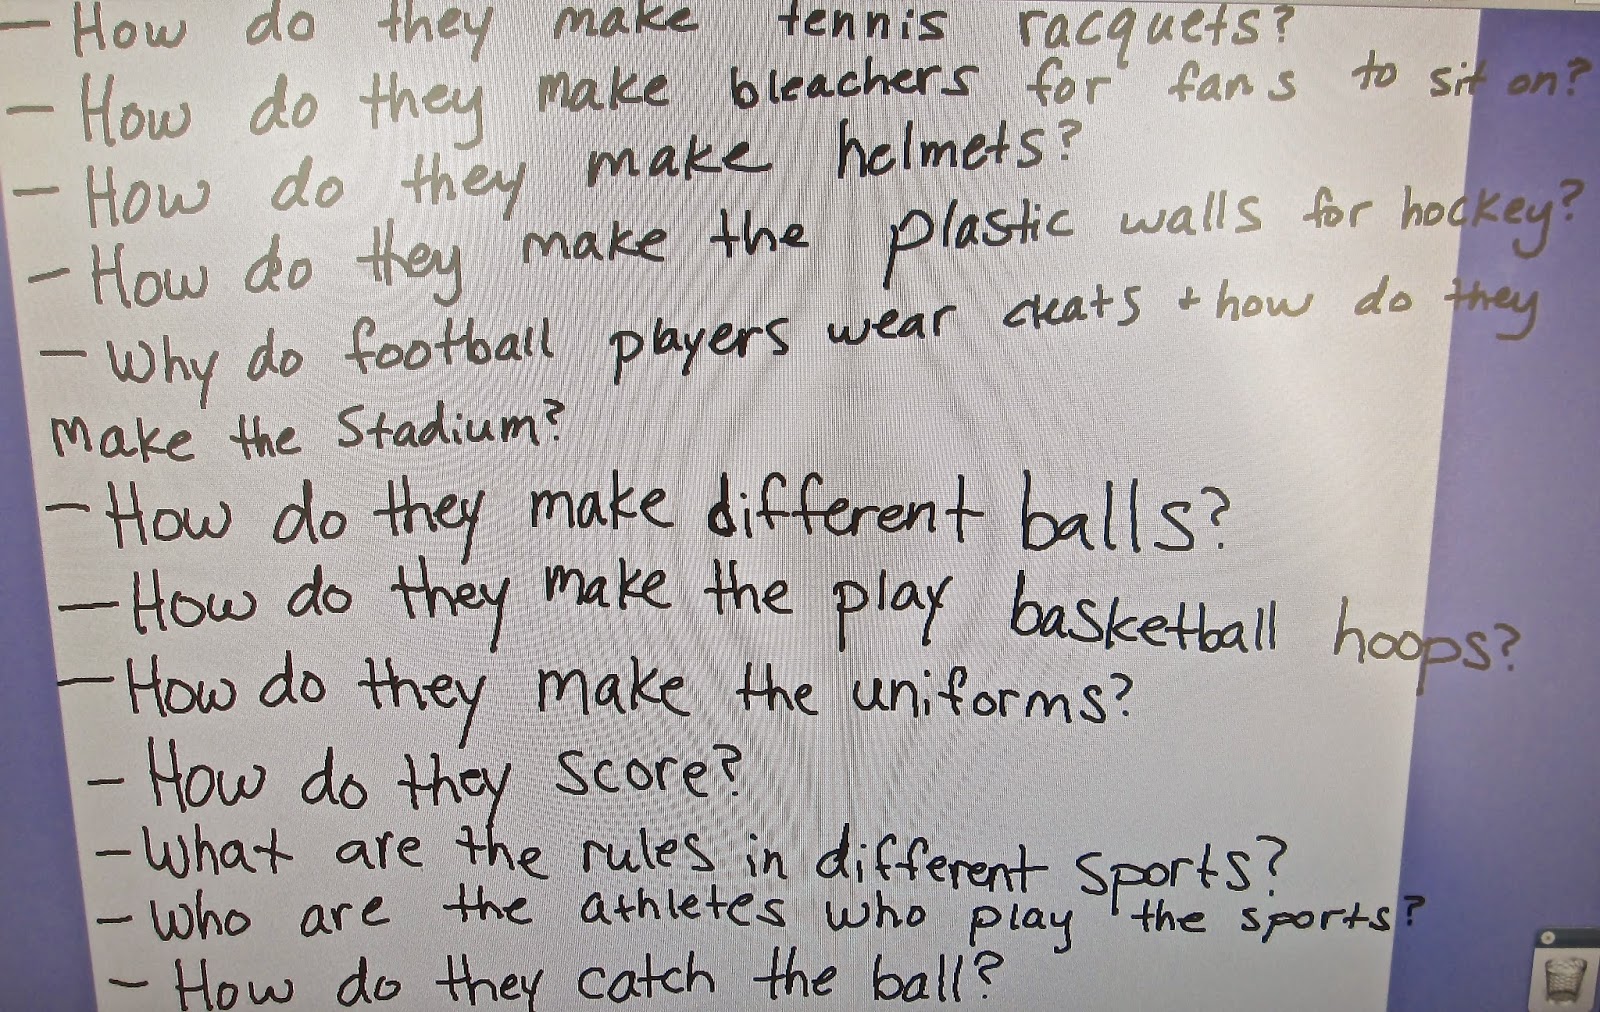 - How do they make tennis racquets?
- How do they make bleachers for fans to sit on?
- How do they make helmets?
- How do they make the plastic walls for hockey?
- Why do football players wear cleats + how do they
make the Stadium?
- How do they make different balls?
- How do they make the play basketball hoops?
- How do they make the uniforms?
- How do they score?
- What are the rules in different sports?
- Who are the athletes who play the sports?
- How do they catch the ball?